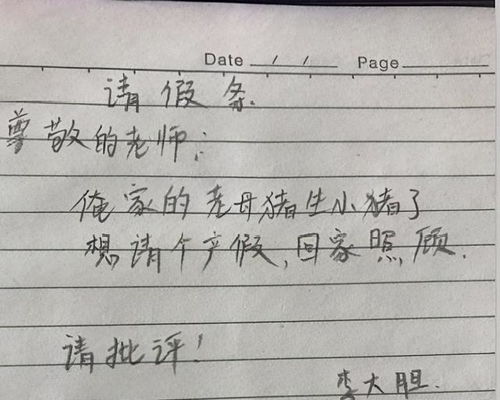 Date / / Page
请假条.
尊敬的老师:
俺家的老母猪生小猪了
想请个产假,回家照顾.
请批评!
李大胆.